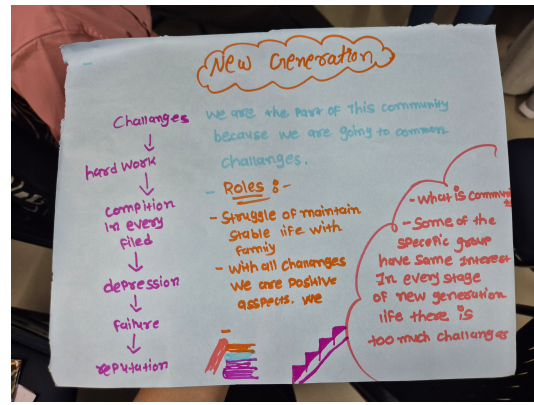 New Generation
Challanges
hard work
compition
in every
filed
depression
failure
reputation
We are the part of This community
because we are going to common
challanges.
- Roles :-
- Struggle of maintain
stable life with
family
- With all Chananges
We are positive
asspects. We
- What is communi
- Some of the
specific group
have same interest
In every stage
of new generation
life there is
too much challanges